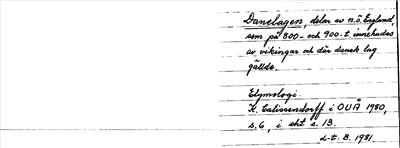 Danelagen, delar av n.ö. England,
som på 800- och 900-t innehades
av vikingar och där dansk lag
gällde.
Etymologi:
K. Calissendorff i OUÅ 1980,
s. 6, i sht s. 13.
L-t. B. 1981.